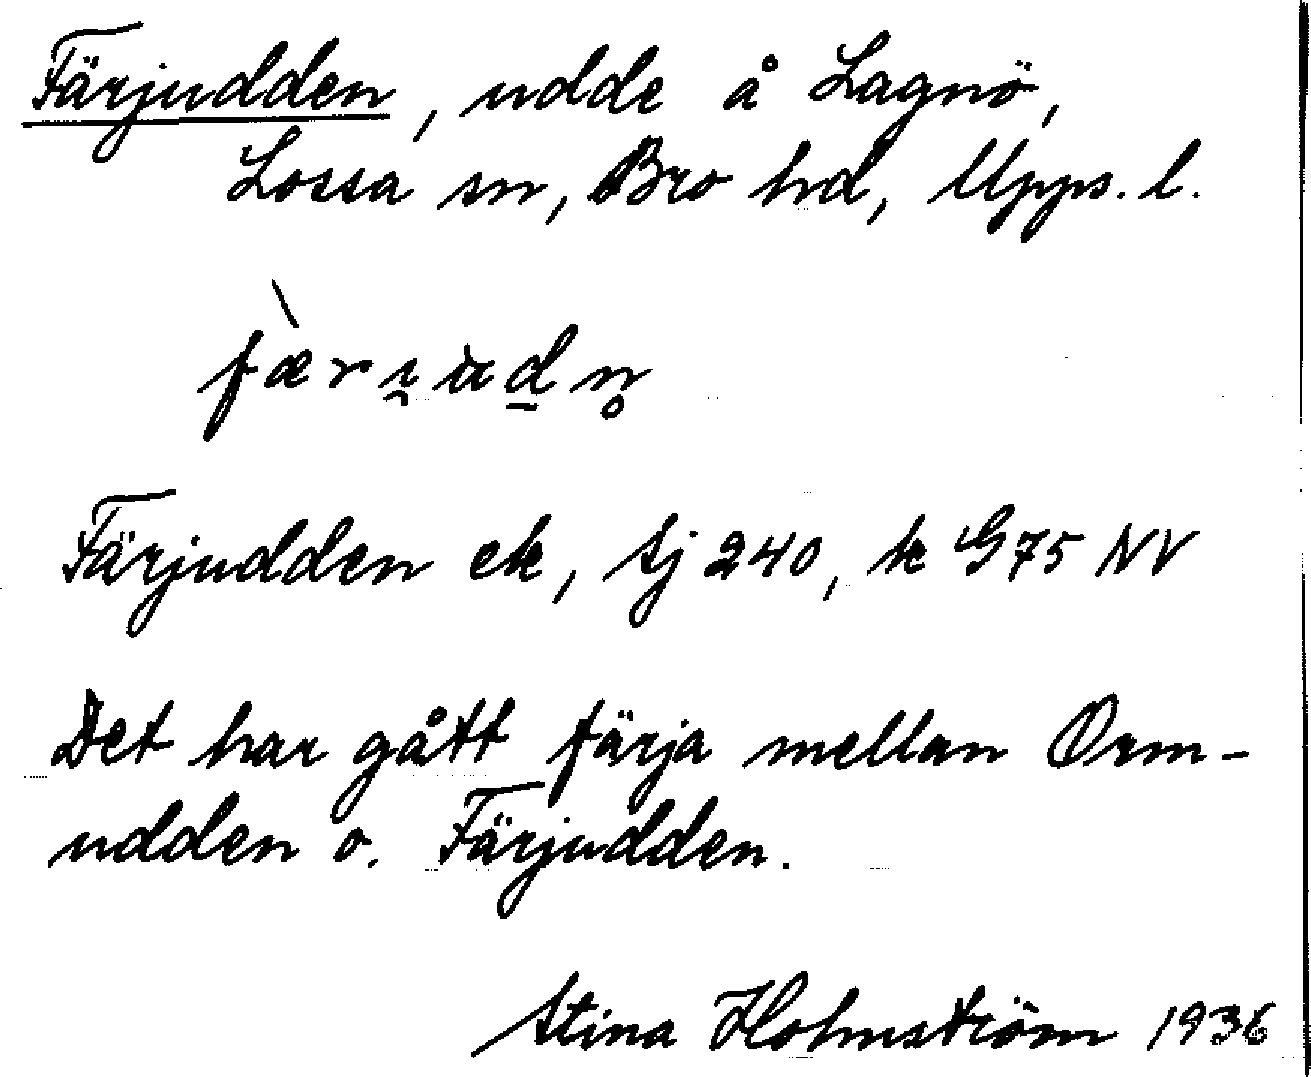 Färjudden, udde å Lagnö,
Lossa sn, Bro hd, Upps. l.
Färjudden ek, sj 240, k G75 NV
Det har gått färja mellan Orm-
udden o. Färjudden.
Stina Holmström 1936